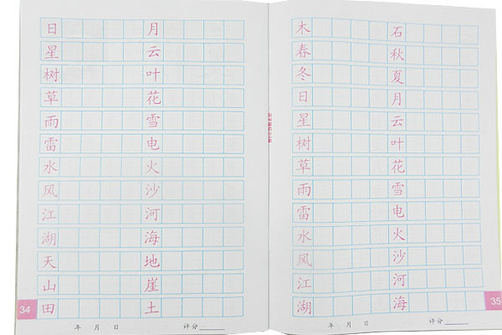 日 月
星 云
树 叶
草 花
雨 雪
雷 电
水 火
风 沙
江 河
湖 海
天 地
山 崖
田 土
34
年 月 日 评分
木 石
春 秋
冬 夏
日 月
星 云
树 叶
草 花
雨 雪
雷 电
水 火
风 沙
江 河
湖 海
35
年 月 日 评分